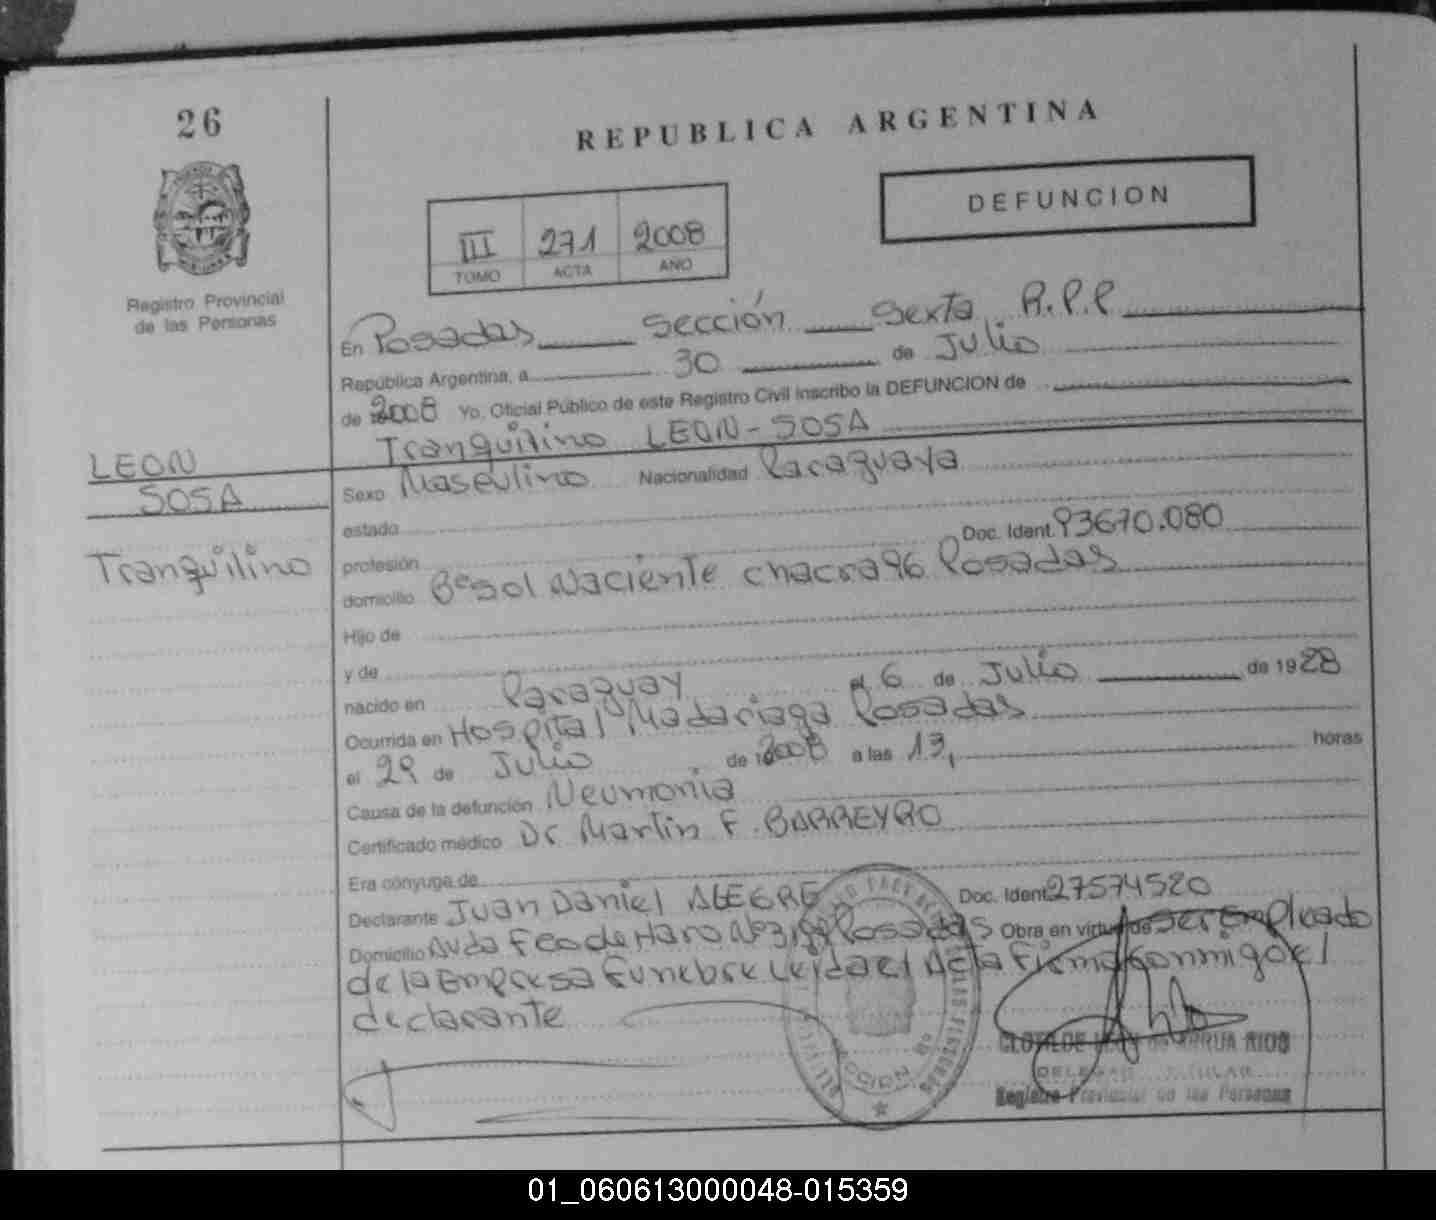 26
REPUBLICA ARGENTINA
DEFUNCION
III 271 2008
TOMO ACTA AÑO
Registro Provincial
de las Personas
En Posadas Sección Sexta R.P.P
República Argentina, a 30 de Julio
de 2008 Yo, Oficial Público de este Registro Civil inscribo la DEFUNCION de
Tranquilino LEON-SOSA
LEON
SOSA
Tranquilino
Sexo Masculino Nacionalidad Paraguaya
estado
profesión Doc. Ident. 93670.080
domicilio Bº Sol Naciente chacra 96 Posadas
Hijo de
y de
nacido en Paraguay el 6 de Julio de 1928
Ocurrida en Hospital Madariaga Posadas
el 29 de Julio de 2008 a las 13, horas
Causa de la defunción Neumonia
Certificado médico Dr Martin F. BARREYRO
Era cónyuge de
Declarante Juan Daniel ALEGRE Doc. Ident 27574520
Domicilio Avda Fco de Haro Nº Posadas Obra en virtud de Ser Empleado
de la Empresa Funebre Leida el Acta Firma conmigo el
declarante
RIOS
Registro Provincial de las Personas
01_060613000048-015359